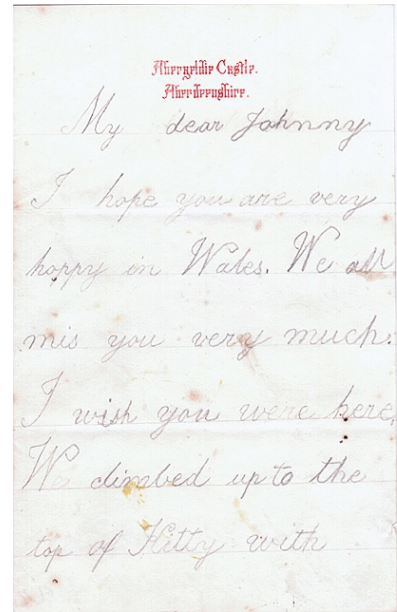 Abergeldie Castle.
Aberdeenshire.
My dear Johnny
I hope you are very
happy in Wales. We all
mis you very much.
I wish you were here.
We climbed up to the
top of Kitty with